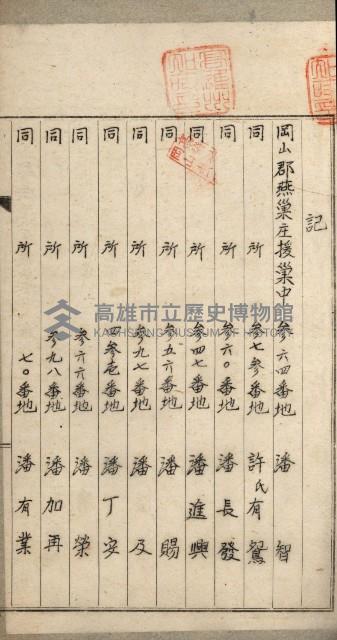 記
岡山郡燕巢庄援巢中參六四番地 潘智
同 所 參七參番地 許氏有鴛
同 所 參六〇番地 潘長發
同 所 參四七番地 潘進興
同 所 參五六番地 潘賜
同 所 參九七番地 潘及
同 所 四參壱番地 潘丁安
同 所 參六六番地 潘榮
同 所 參九八番地 潘加再
同 所 七〇番地 潘有業
高雄市立歷史博物館
KAOHSIUNG MUSEUM OF HISTORY